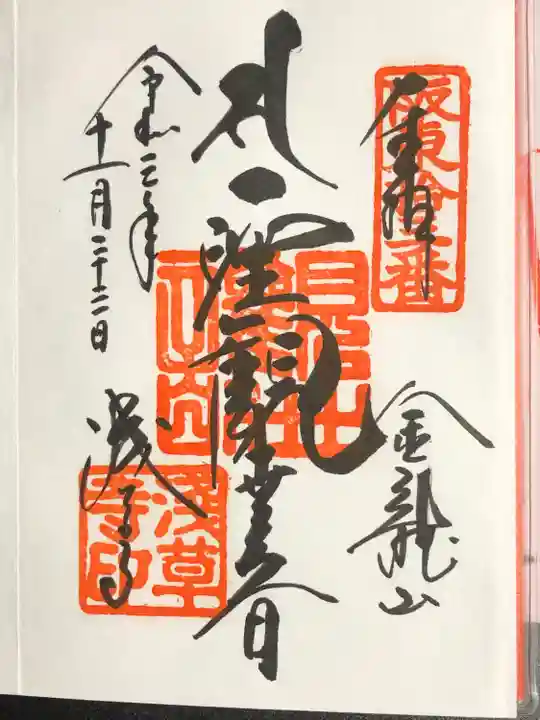 奉拝
坂東拾三番
金龍山
聖観世音
令和元年
十一月二十二日
浅草寺
浅草寺印